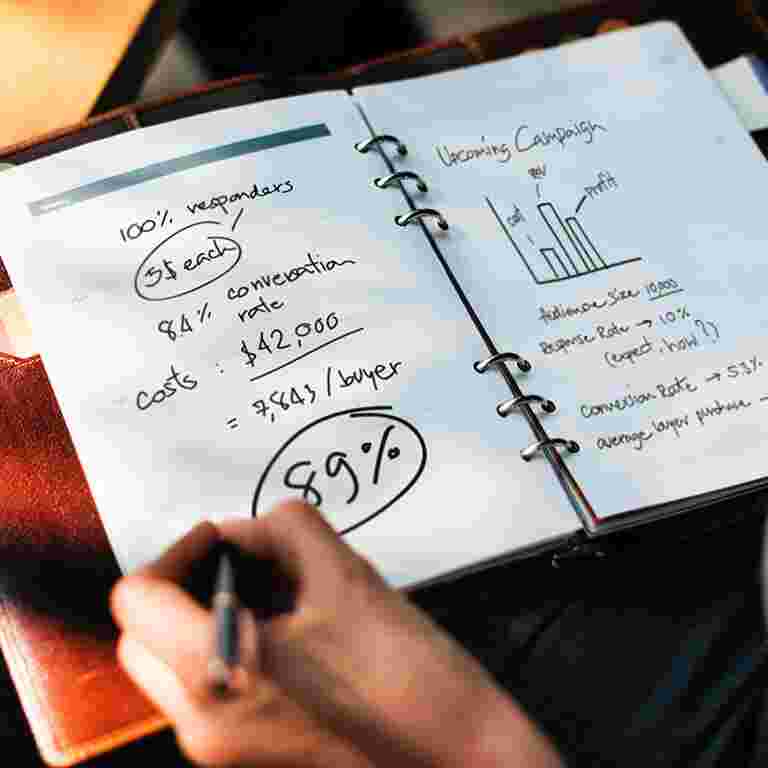 100% responders
5$ each
8.4% conversation
rate
costs : $42,000
= 7,843 / buyer
89%
Upcoming Campaign
cost
profit
Audience Size 10,000
Response Rate → 10%
(expect, how?)
Conversion Rate → 5.3%
average buyer purchase →